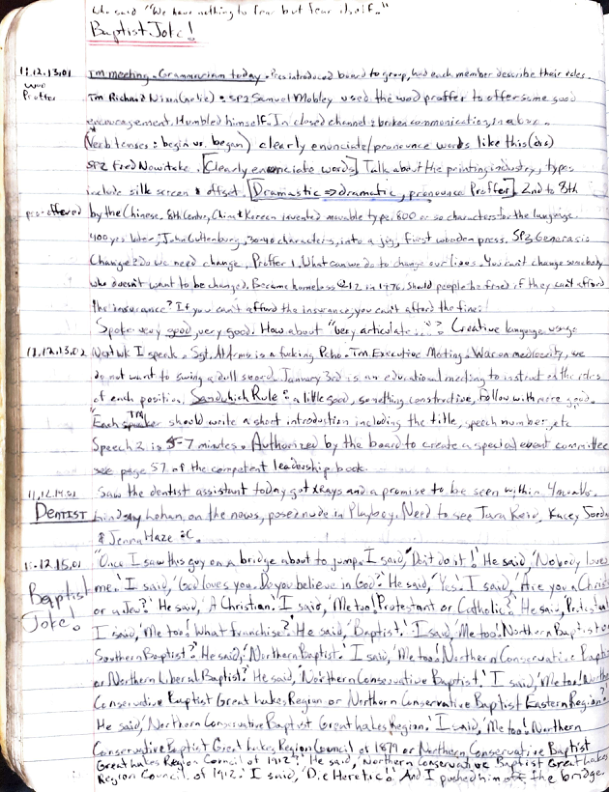 who said "We have nothing to fear but fear itself."
Baptist Joke!
11.12.13.01 Tm meeting. Grammarian today. introduced board to group, had each member describe their roles.
Word Proffer Tm Richard Nixon : SP2 Samuel Mobley used the word proffer to offer some good
encouragement. Humbled himself. In closed channel = broken communication,
(Verb tenses: begin vs. began) clearly enunciate/pronounce words like this
SP2 Fred Nowitake. [Clearly enunciate words] Talk about the printing industry, types
include silk screen & offset. [Dramastic => dramatic, pronounced Proffer] 2nd to 8th
by the Chinese. 8th Century, China & Korean invented movable type. 800 or so characters for the language.
400 yrs later, John Guttenburg, 30-40 characters, into a jig, first wooden press. SP3
Change? Do we need change. Proffer 1. What can we do to change our lives. You can't change somebody
who doesn't want to be changed. Became homeless @ 12 in 1976. Should people be fined if they can't afford
the insurance? If you can't afford the insurance, you can't afford the fine!
Spoke very good, very good. How about "very articulate..."? Creative language usage
11.12.13.02 Next wk I speak. Sgt. At Arms is a fucking . Tm Executive Meeting. War on mediocrity, we
do not want to swing a dull sword. January 3rd is an educational meeting to instruct on the roles
of each position. Sandwich Rule = a little good, something constructive, follow with more good.
"Each TM speaker should write a short introduction including the title, speech number, etc
Speech 2 is 5-7 minutes. Authorized by the board to create a special event committee
see page 57 of the competent leadership book
11.12.14.01 Saw the dentist assistant today got xRays and a promise to be seen within
DENTIST Lindsay Lohan, on the news, posed nude in Playboy. Need to see Tara Reid, Kacey Jordan
& Jenna Haze :C.
11.12.15.01 "Once I saw this guy on a bridge about to jump. I said, 'Don't do it!' He said, 'Nobody loves
Baptist Joke! me.' I said, 'God loves you. Do you believe in God?' He said, 'Yes.' I said, 'Are you a Christian
or a Jew?' He said, 'A Christian.' I said, 'Me too! Protestant or Catholic?' He said, 'Protestant.'
I said, 'Me too! What franchise?' He said, 'Baptist.' I said, 'Me too! Northern Baptist or
Southern Baptist?' He said, 'Northern Baptist.' I said, 'Me too! Northern Conservative Baptist
or Northern Liberal Baptist?' He said, 'Northern Conservative Baptist.' I said, 'Me too! Northern
Conservative Baptist Great Lakes Region or Northern Conservative Baptist Eastern Region?'
He said, 'Northern Conservative Baptist Great Lakes Region.' I said, 'Me too! Northern
Conservative Baptist Great Lakes Region Council of 1879 or Northern Conservative Baptist
Great Lakes Region Council of 1912?' He said, 'Northern Conservative Baptist Great Lakes
Region Council of 1912.' I said, 'Die Heretic!' And I pushed him off the bridge.